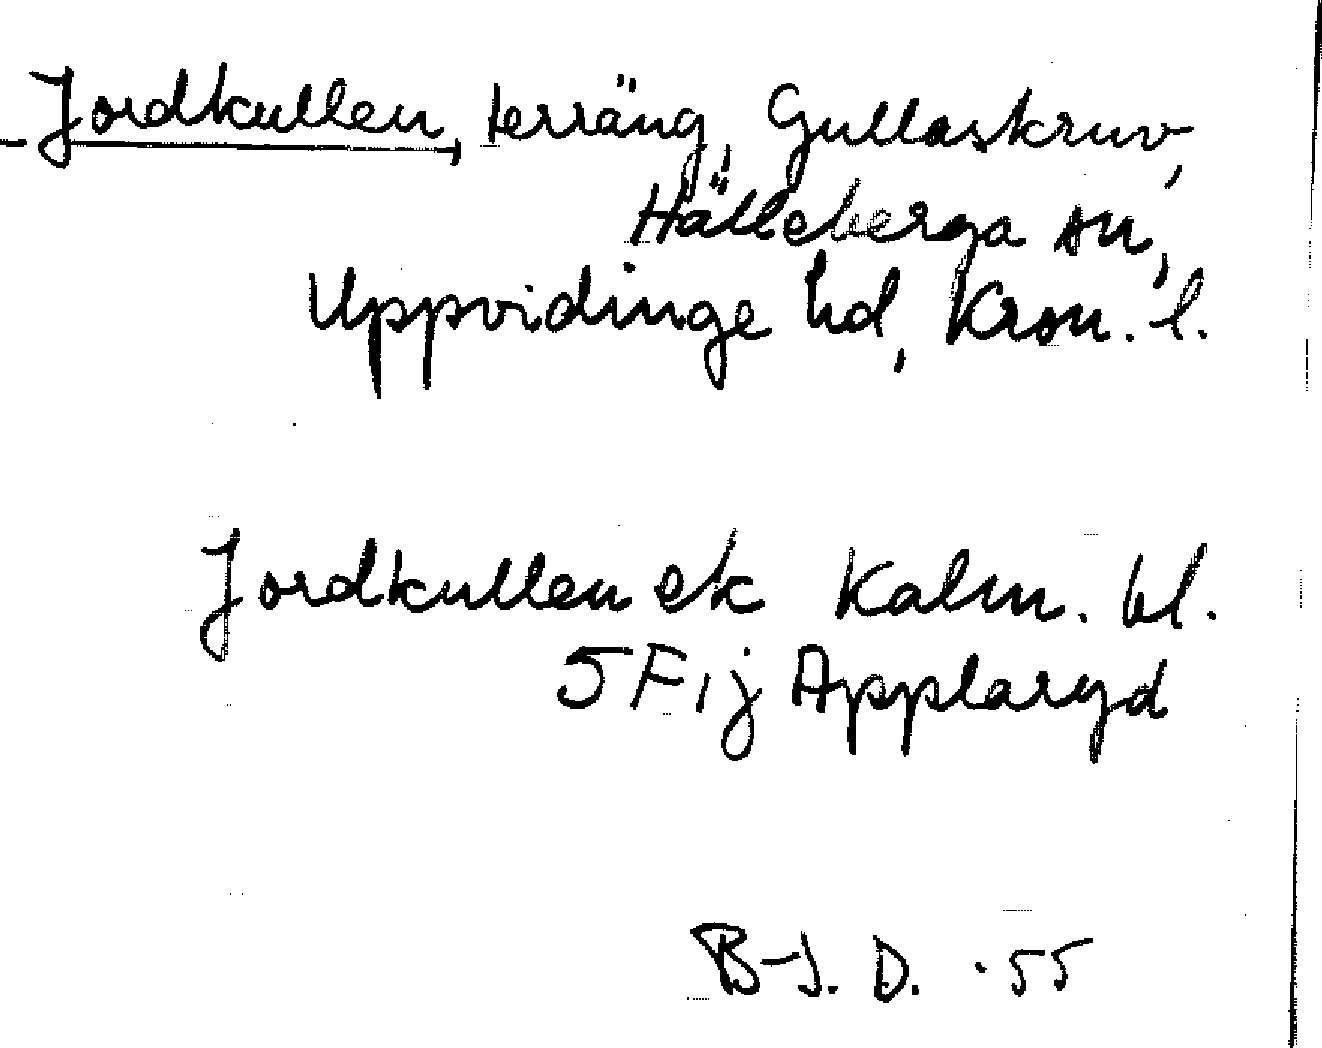 Jordkullen, terräng, Gullaskruv,
Hälleberga sn,
Uppvidinge hd, Kron. l.
Jordkullen ek Kalm. bl.
5 F i j Applaryd
B-J. D. -55